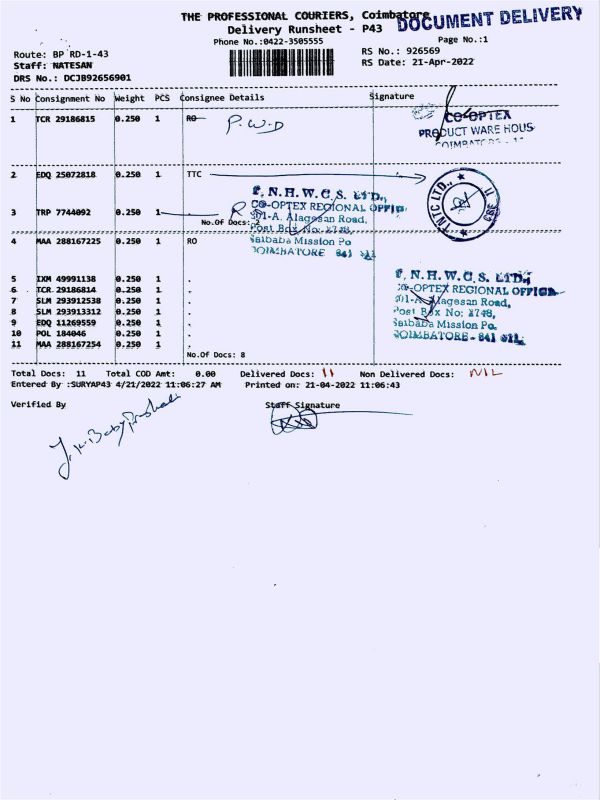 THE PROFESSIONAL COURIERS, Coimbatore
DOCUMENT DELIVERY
Delivery Runsheet - P43
Phone No.:0422-3505555
Page No.:1
Route: BP RD-1-43
RS No.: 926569
Staff: NATESAN
RS Date: 21-Apr-2022
DRS No.: DCJB92656901
S No Consignment No Weight PCS Consignee Details Signature
1 TCR 29186815 0.250 1 RO P.W.D
CO-OPTEX
PRODUCT WARE HOUS
2 EDQ 25072818 0.250 1 TTC
TNTC LTD., CBE 11
3 TRP 7744092 0.250 1 R
No.Of Docs: 2
T.N.H.W.C.S. LTD.,
CO-OPTEX REGIONAL OFFICE
301-A. Alagesan Road,
Post Box No: 3748,
Saibaba Mission Po
COIMBATORE 641 011
4 MAA 288167225 0.250 1 RO
5 IXM 49991138 0.250 1 .
6 TCR 29186814 0.250 1 .
7 SLM 293912538 0.250 1 .
8 SLM 293913312 0.250 1 .
9 EDQ 11269559 0.250 1 .
10 POL 184046 0.250 1 .
11 MAA 288167254 0.250 1 .
No.Of Docs: 8
T.N.H.W.C.S. LTD.,
CO-OPTEX REGIONAL OFFICE
301-A Alagesan Road,
Post Box No: 3748,
Saibaba Mission Po.
COIMBATORE - 641 011.
Total Docs: 11 Total COD Amt: 0.00 Delivered Docs: 11 Non Delivered Docs: NIL
Entered By :SURYAP43 4/21/2022 11:06:27 AM Printed on: 21-04-2022 11:06:43
Verified By Staff Signature